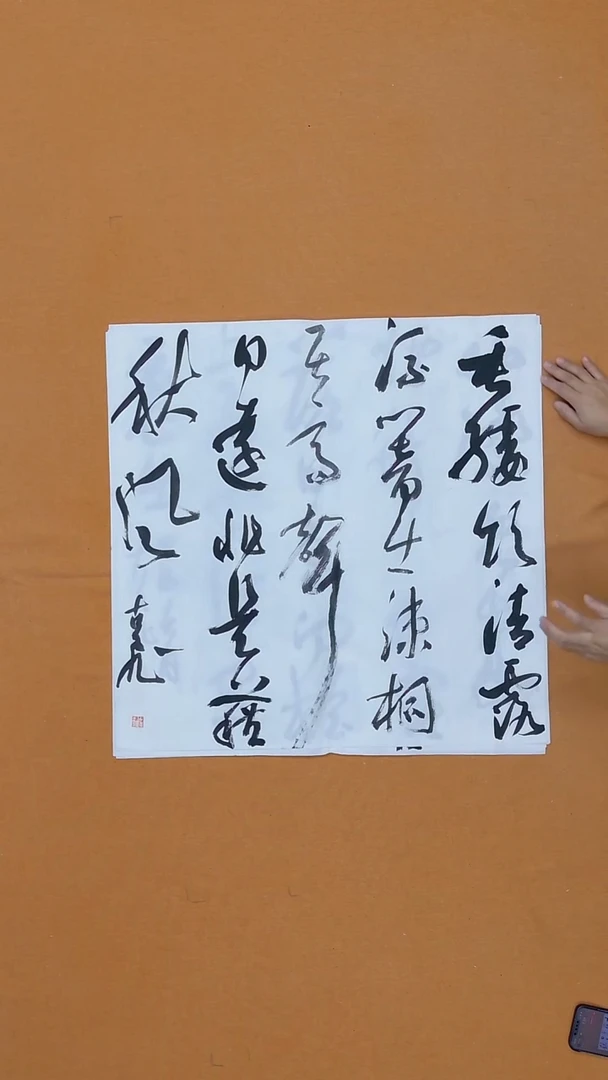 垂緌飲清露
流響出疎桐
居高聲
自遠非是藉
秋風